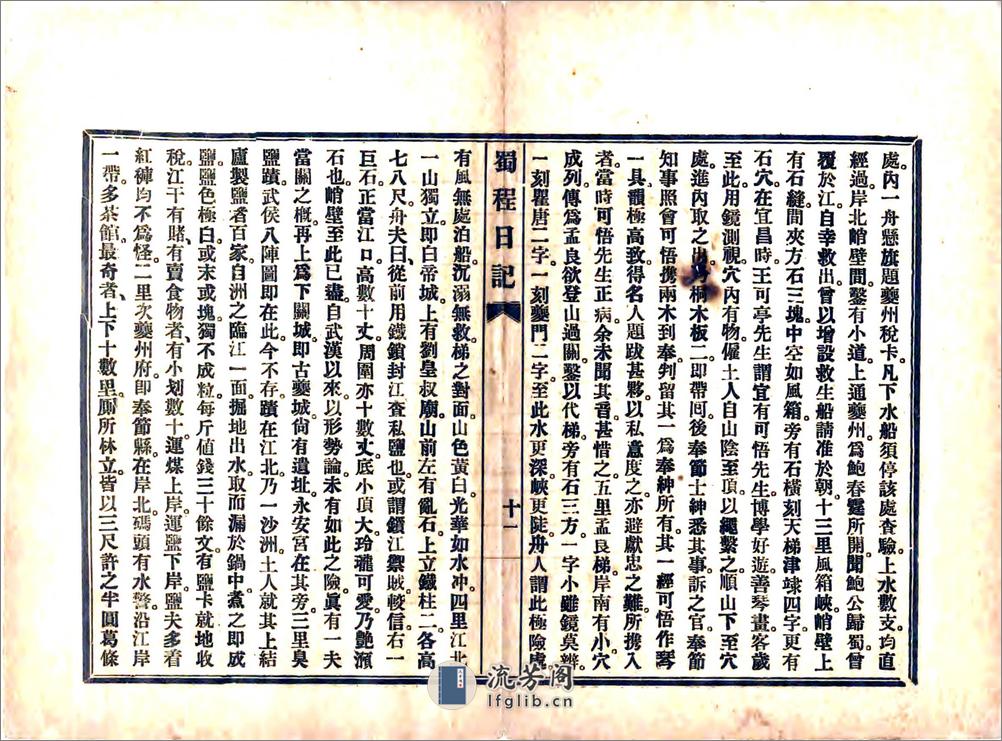 處。內一舟懸旗題夔州稅卡。凡下水船須停該處查驗。上水數支。均直
經過。岸北峭壁間。鑿有小道。上通夔州。爲鮑春霆所開。聞鮑公歸蜀。曾
覆於江。自幸救出。曾以增設救生船請准於朝。十三里風箱峽。峭壁上
有石縫。間夾方石三塊。中空如風箱。旁有石橫刻天梯津逮四字。更有
石穴。在宜昌時。王可亭先生謂宜有可悟先生博學好遊。善琴畫。客歲
至此。用鏡測視。穴內有物。僱土人自山陰至頂。以繩繫之。順山下至穴
處。進內取之。出爲桐木板二。即帶囘。後奉節士紳悉其事。訴之官。奉節
知事照會可悟。携兩木到奉。判留其一。爲奉紳所有。其一經可悟作琴
一具。韻極高致。得名人題跋甚夥。以私意度之。亦避獻忠之難。所携入
者。當時可悟先生正病。余未聞其音。甚惜之。五里孟良梯。岸南有小穴
成列。傳爲孟良欲登山過關。鑿以代梯。旁有石三方。一字小。雖鏡莫辨。
一刻瞿唐二字。一刻夔門二字。至此水更深。峽更陡。舟人謂此極險處。
蜀程日記
十一
有風無處泊船。沉溺無救。梯之對面。山色黃白。光華如水冲。四里江北
一山獨立。即白帝城。上有劉皇叔廟。山前左有亂石。上立鐵柱二。各高
七八尺。舟夫曰。從前用鐵鎖封江查私鹽也。或謂鎖江禦賊。較信。右一
巨石。正當江口。高數十丈。周圍亦十數丈。底小頂大。玲瓏可愛。乃艷澦
石也。峭壁至此已盡。自武漢以來。以形勢論。未有如此之險。眞有一夫
當關之槪。再上爲下關城。即古夔城。尙有遺址。永安宮在其旁。三里臭
鹽蹟。武侯八陣圖即在此。今不存。蹟在江北。乃一沙洲。土人就其上結
廬製鹽者百家。自洲之臨江一面。掘地出水。取而漏於鍋中煮之。即成
鹽。鹽色極白。或末或塊。獨不成粒。每斤值錢三十餘文。有鹽卡就地收
稅。江干有賭、有賣食物者、有小划數十。運煤上岸。運鹽下岸。鹽夫多着
紅褲。均不爲怪。二里次夔州府。即奉節縣。在岸北。碼頭有水警。沿江岸
一帶多茶館。最奇者、上下十數里。厠所林立。皆以三尺許之半圓葛條
流芳閣
lfglib.cn